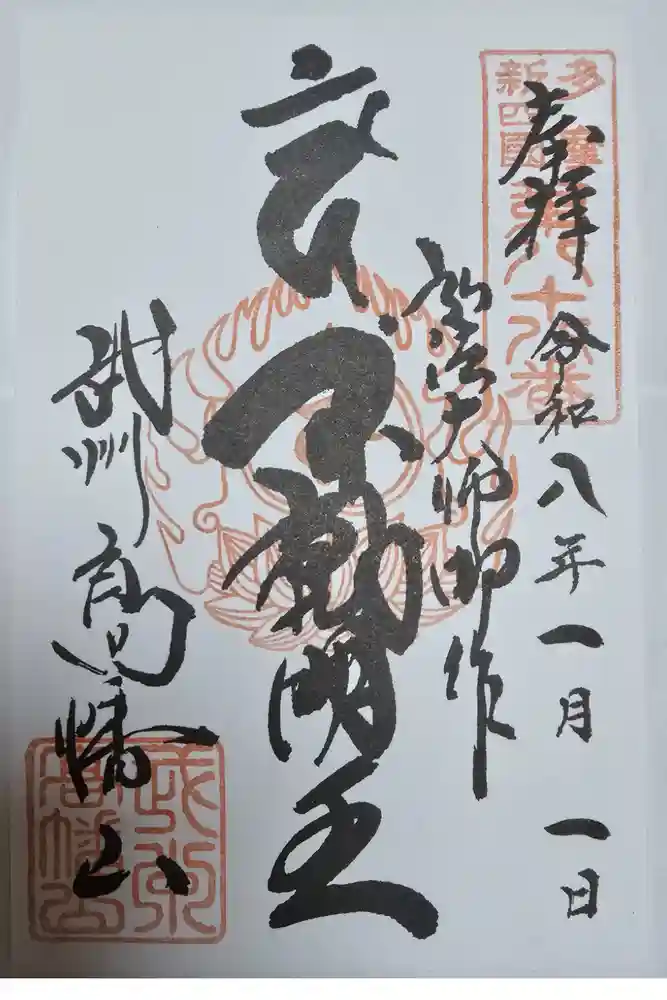 多摩
新四國
第八十八番
奉拝
令和八年一月一日
弘法大師御作
不動明王
武州高幡山
武州
高幡山